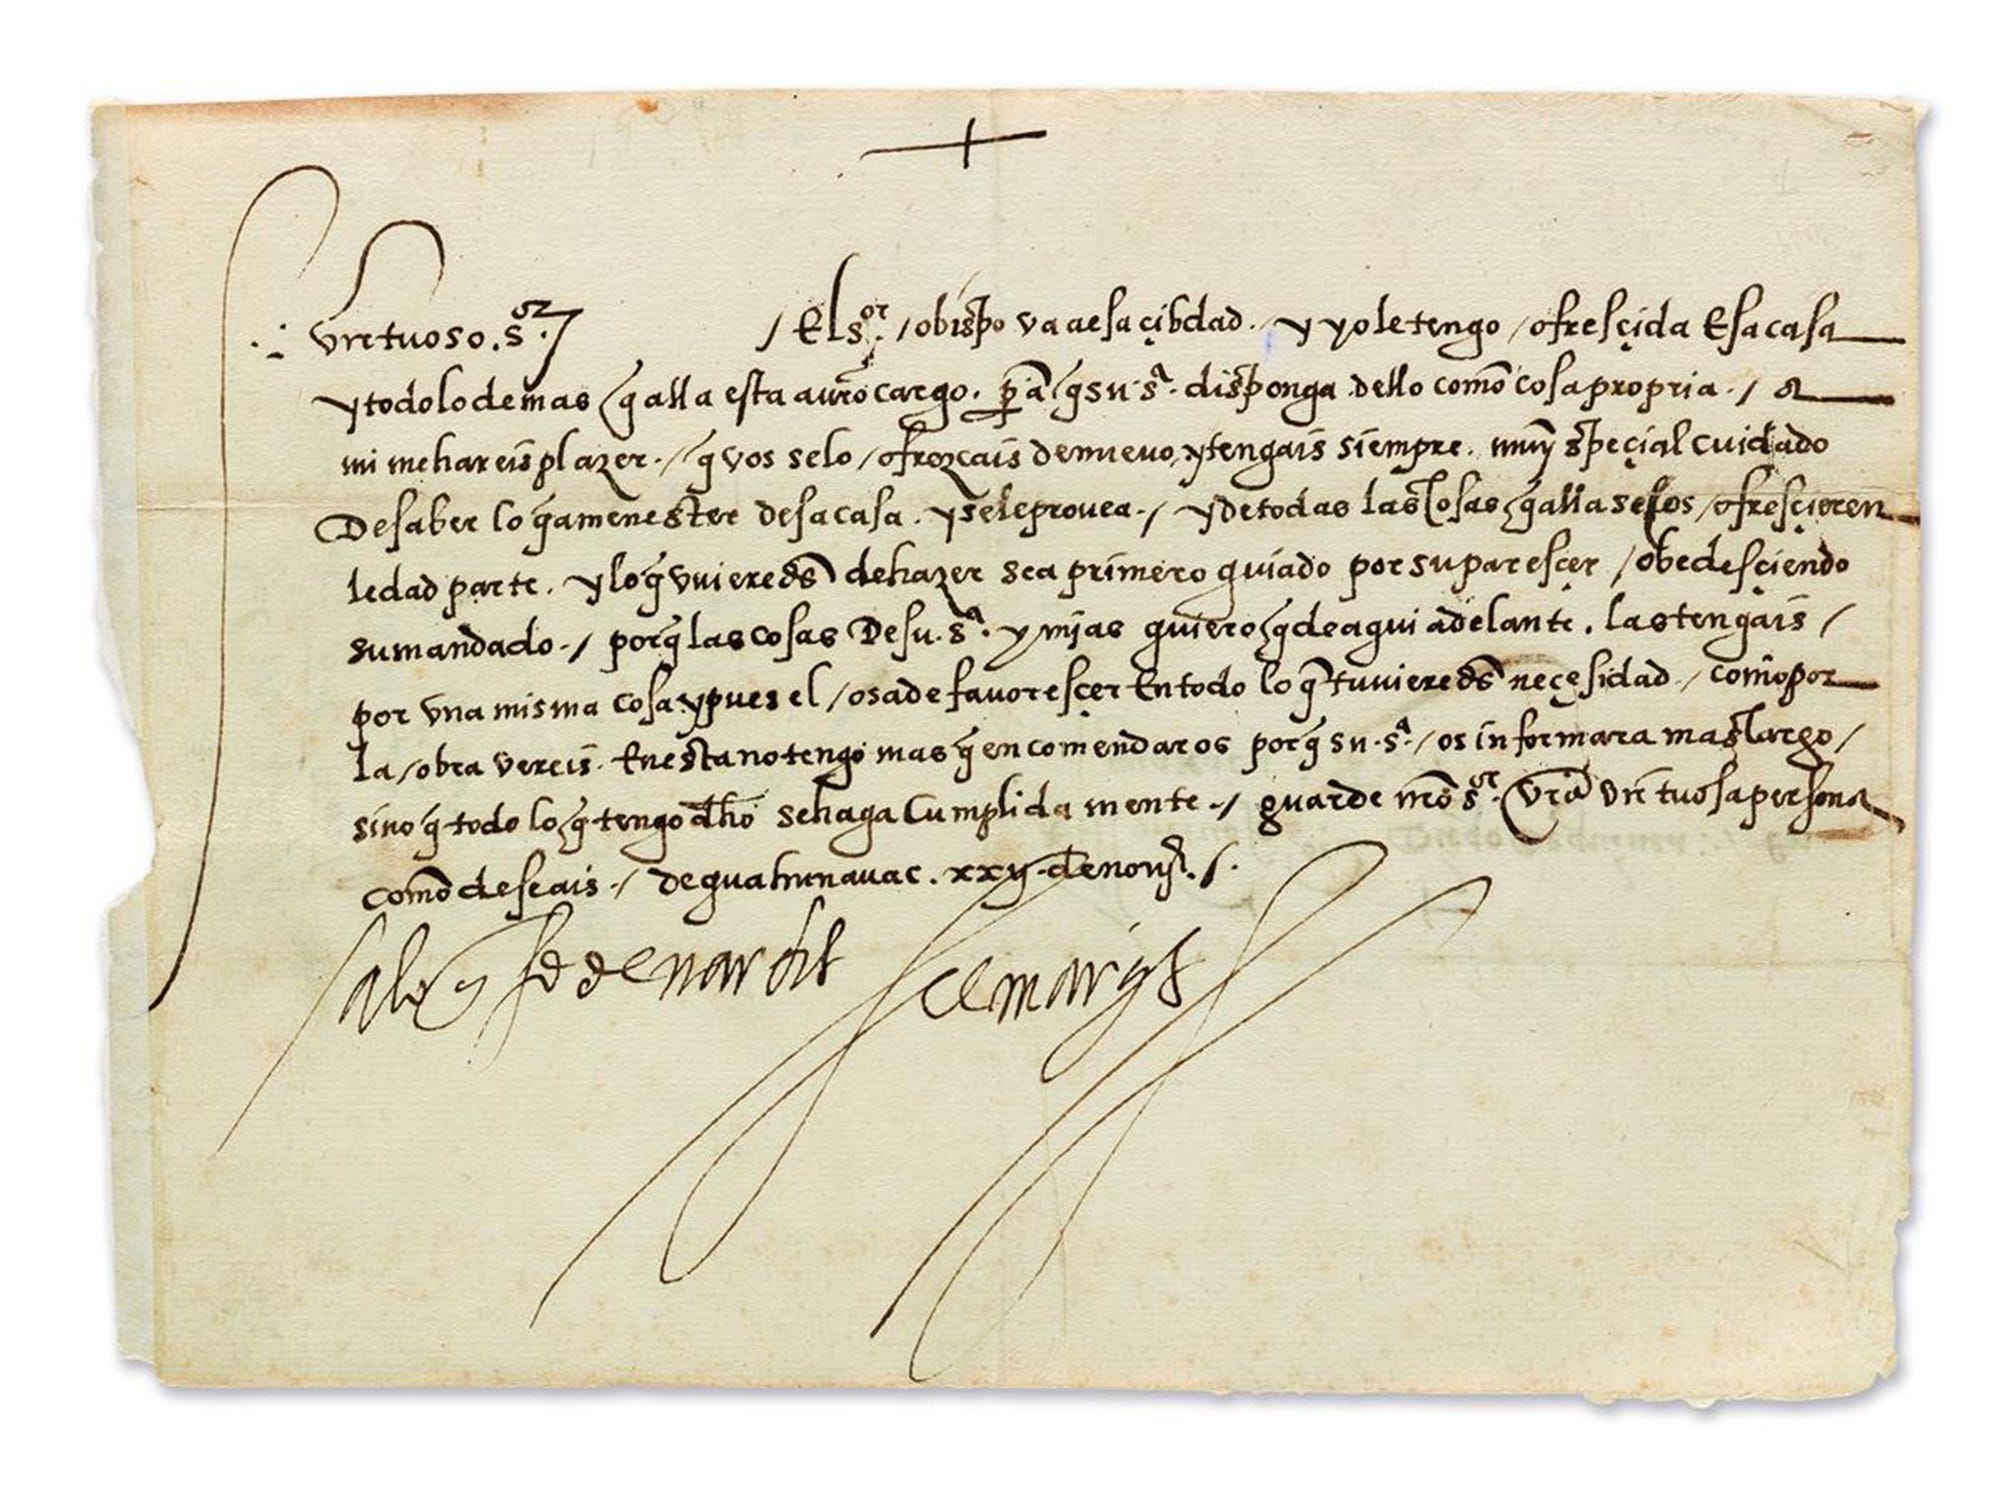 +
virtuoso. s.or / El s.or / obispo va a esa çibdad. / y yo le tengo / ofresçida Esa casa
y todo lo demas q̃ alla esta a vr̃o cargo. p̃a q̃ su s.a disponga dello como cosa propria. / a
mi me hareis plazer. / q̃ vos se lo / ofrozcais de nuevo, y tengais siempre. muy speçial cuidado
De saber lo q̃ a menester desa casa. y se le provea. / y de todas las cosas q̃ alla se os / ofresçieren
le dad parte. y lo q̃ vuieredẽs de hazer sea primero guiado por su paresçer / obedesçiendo
su mandado. / porq̃ las cosas De su. s.a y mjas quiero q̃ de aqui adelante. las tengais /
por vna misma cosa y pues el / os a de favoresçer En todo lo q̃ tuvieredẽs neçesidad. / como por
la / obra vereis. En esta no tengo mas q̃ encomendaros porq̃ su. s.a / os informara mas largo /
sino q̃ todo lo q̃ tengo dho se haga Cumplidamente. / guarde nr̃o s.or vr̃a virtuosa persona
como deseais. / de quahunavac. xxij de nouj.e /.
el marq̃s